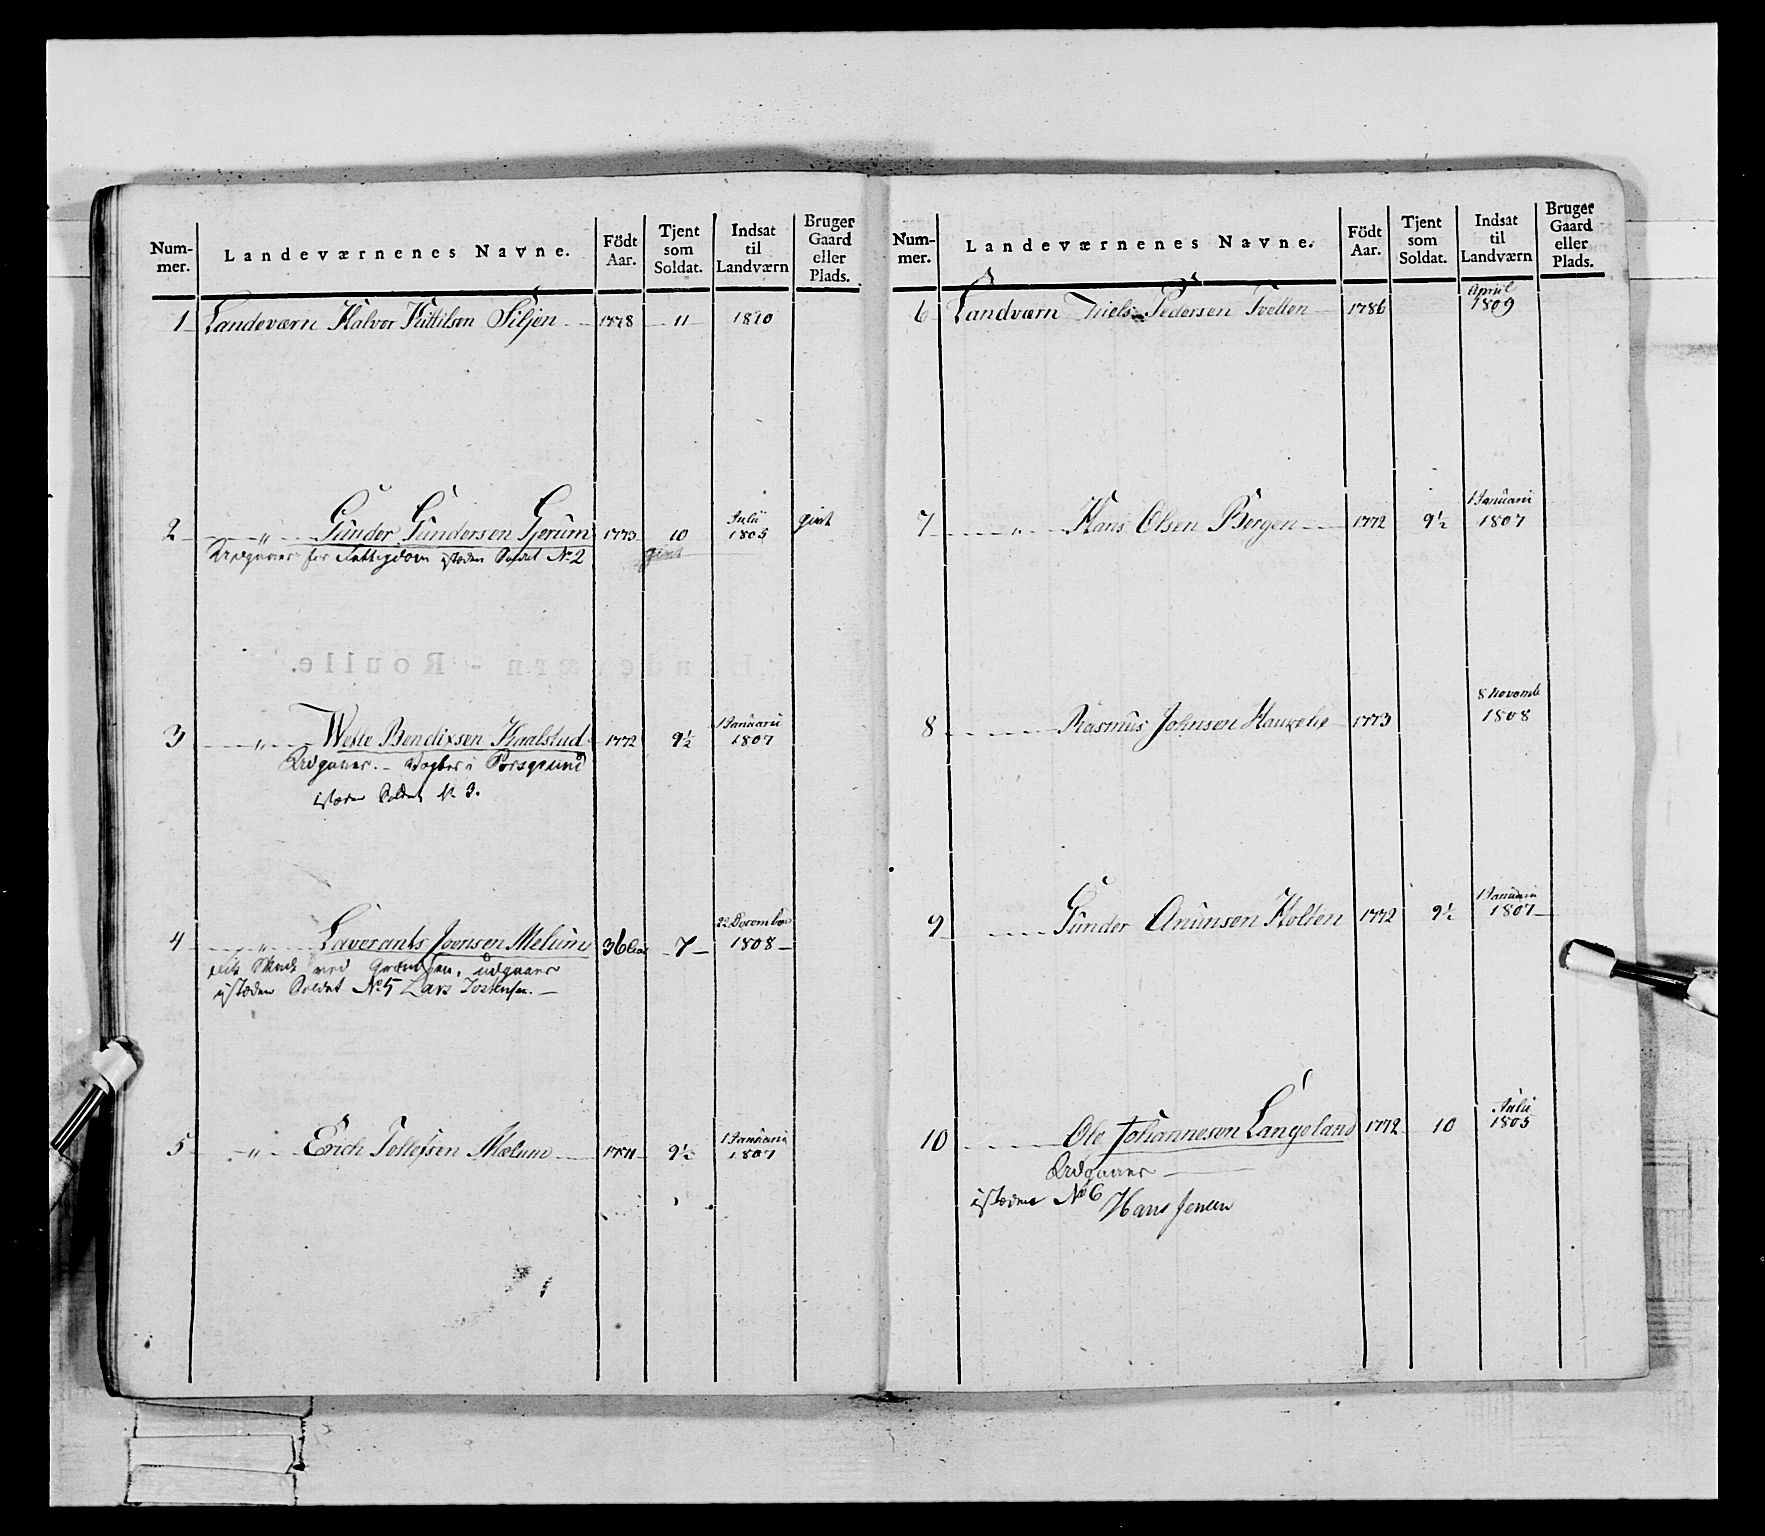 Num-mer. Landeværnenes Navne. Födt Aar. Tjent som Soldat. Indsat til Landværn Bruger Gaard eller Plads.
1 Landeværn Halvor Kittilsen Siljen 1778 11 1810
2 " Gunder Gundersen Gjerum 1773 10 Julii 1805 givt
Udgaaer for Fattigdom istæden Soldat No 2 givt
3 " Weste Bendixsen Kaalstad 1772 9½ 1 Januarii 1807
Udgaaer. - i Porsgrund
istæden Soldat N. 3.
4 " Laverants Joensen Melum 36 Aar 7 22 December 1808
ved Grændsen, udgaaer
istæden Soldat No 5 Lars Jostensen.
5 " Erich Tollefsen Mælum 1771 9½ 1 Januarii 1807
Num-mer. Landeværnenes Navne. Födt Aar. Tjent som Soldat. Indsat til Landværn Bruger Gaard eller Plads.
6 Landværn Niels Pedersen Tvetten 1786 April 1809
7 " Hans Olsen Bergen 1772 9½ 1 Januarii 1807
8 Rasmus Johnsen Haukelie 1773 8 Novemb 1808
9 Gunder Anunsen Holten 1772 9½ 1 Januarii 1807
10 Ole Johannesen Langeland 1772 10 Julii 1805
Udgaaer
istæden No 6
Hans Jensen
Landeværn - Roulle.